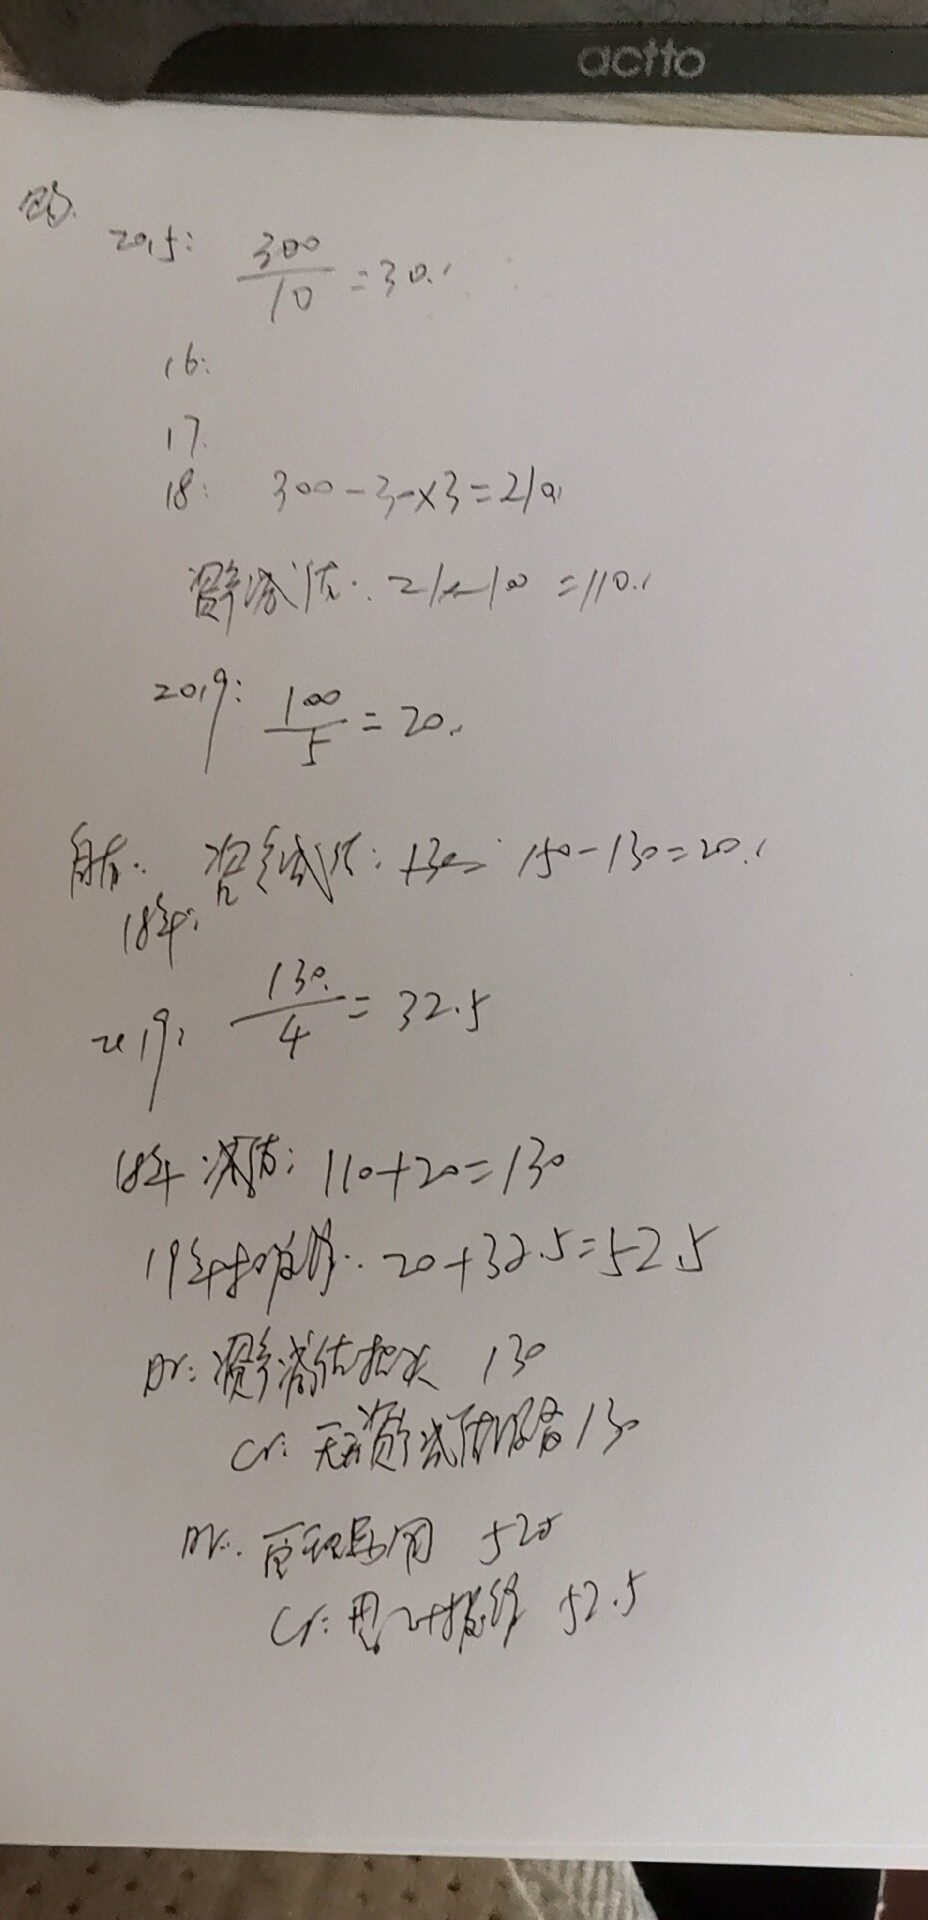 actto
2015: 300/10 = 30.
16:
17.
18: 300-30×3=210.
资产减值: 210-100=110.
2019: 100/5 = 20.
资产减值: 150-130=20.
18年:
2019: 130/4 = 32.5
18年减值: 110+20=130
19年摊销: 20+32.5=52.5
Dr: 资产减值损失 130
Cr: 无形资产减值准备 130
Dr: 管理费用
Cr: 累计摊销 52.5